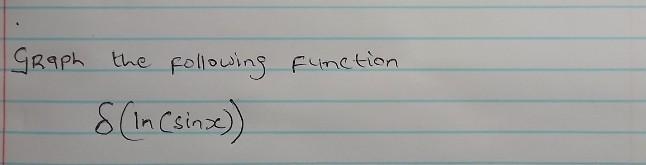 GRaph the following function
δ(ln(sinx))